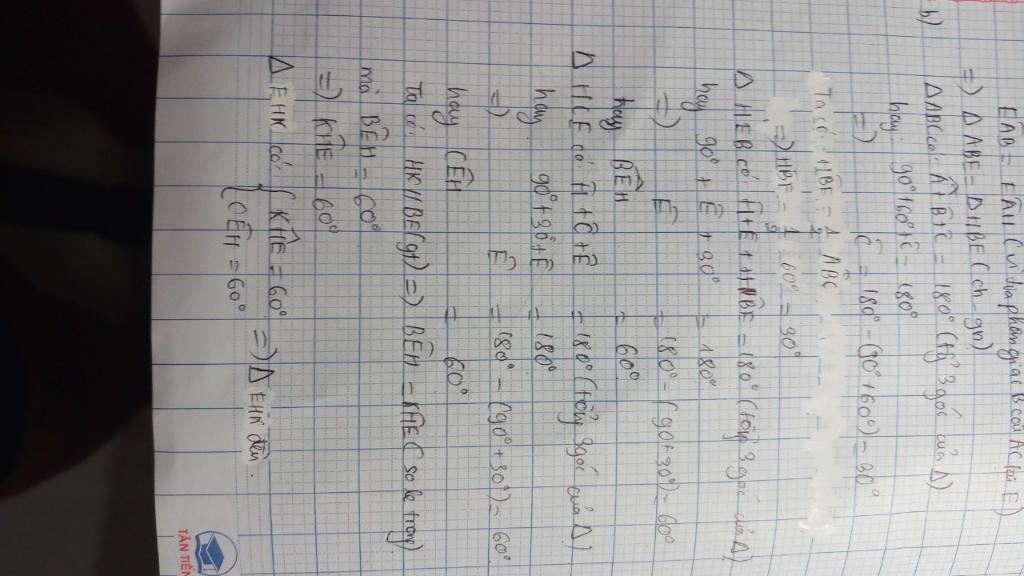 b)
EÂB = EÂH (vì tia phân giác B cắt AC tại E)
=) Δ ABE = Δ HBE (ch-gn)
Δ ABC có: Â + B̂ + Ĉ = 180° ( 3 góc của Δ)
hay 90° + 60° + Ĉ = 180°
=) Ĉ = 180° - (90° + 60°) = 30°
Ta có HB̂E = 1/2 AB̂C
=) HB̂E = 1/2 60° = 30°
Δ HEB có: Ĥ + Ê + HB̂E = 180° (tổng 3 góc của Δ)
hay 90° + Ê + 30° = 180°
=) Ê = 180° - (90° + 30°) = 60°
hay BÊH = 60°
Δ HCE có Ĥ + Ĉ + Ê = 180° (tổng 3 góc của Δ)
hay 90° + 30° + Ê = 180°
=) Ê = 180° - (90° + 30°) = 60°
hay CÊH = 60°
Ta có: HK//BE (gt) =) BÊH = KĤE (so le trong)
mà BÊH = 60°
=) KĤE = 60°
Δ EHK có: { KĤE = 60°
{ CÊH = 60° =) Δ EHK đều.
TÂN TIẾN